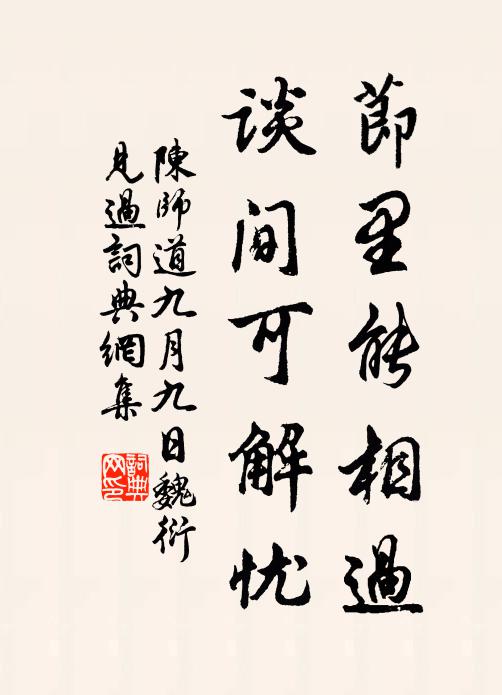 節里能相過
谈间可解忧
陳師道九月九日魏衍
見過詞典網集
詞典网印